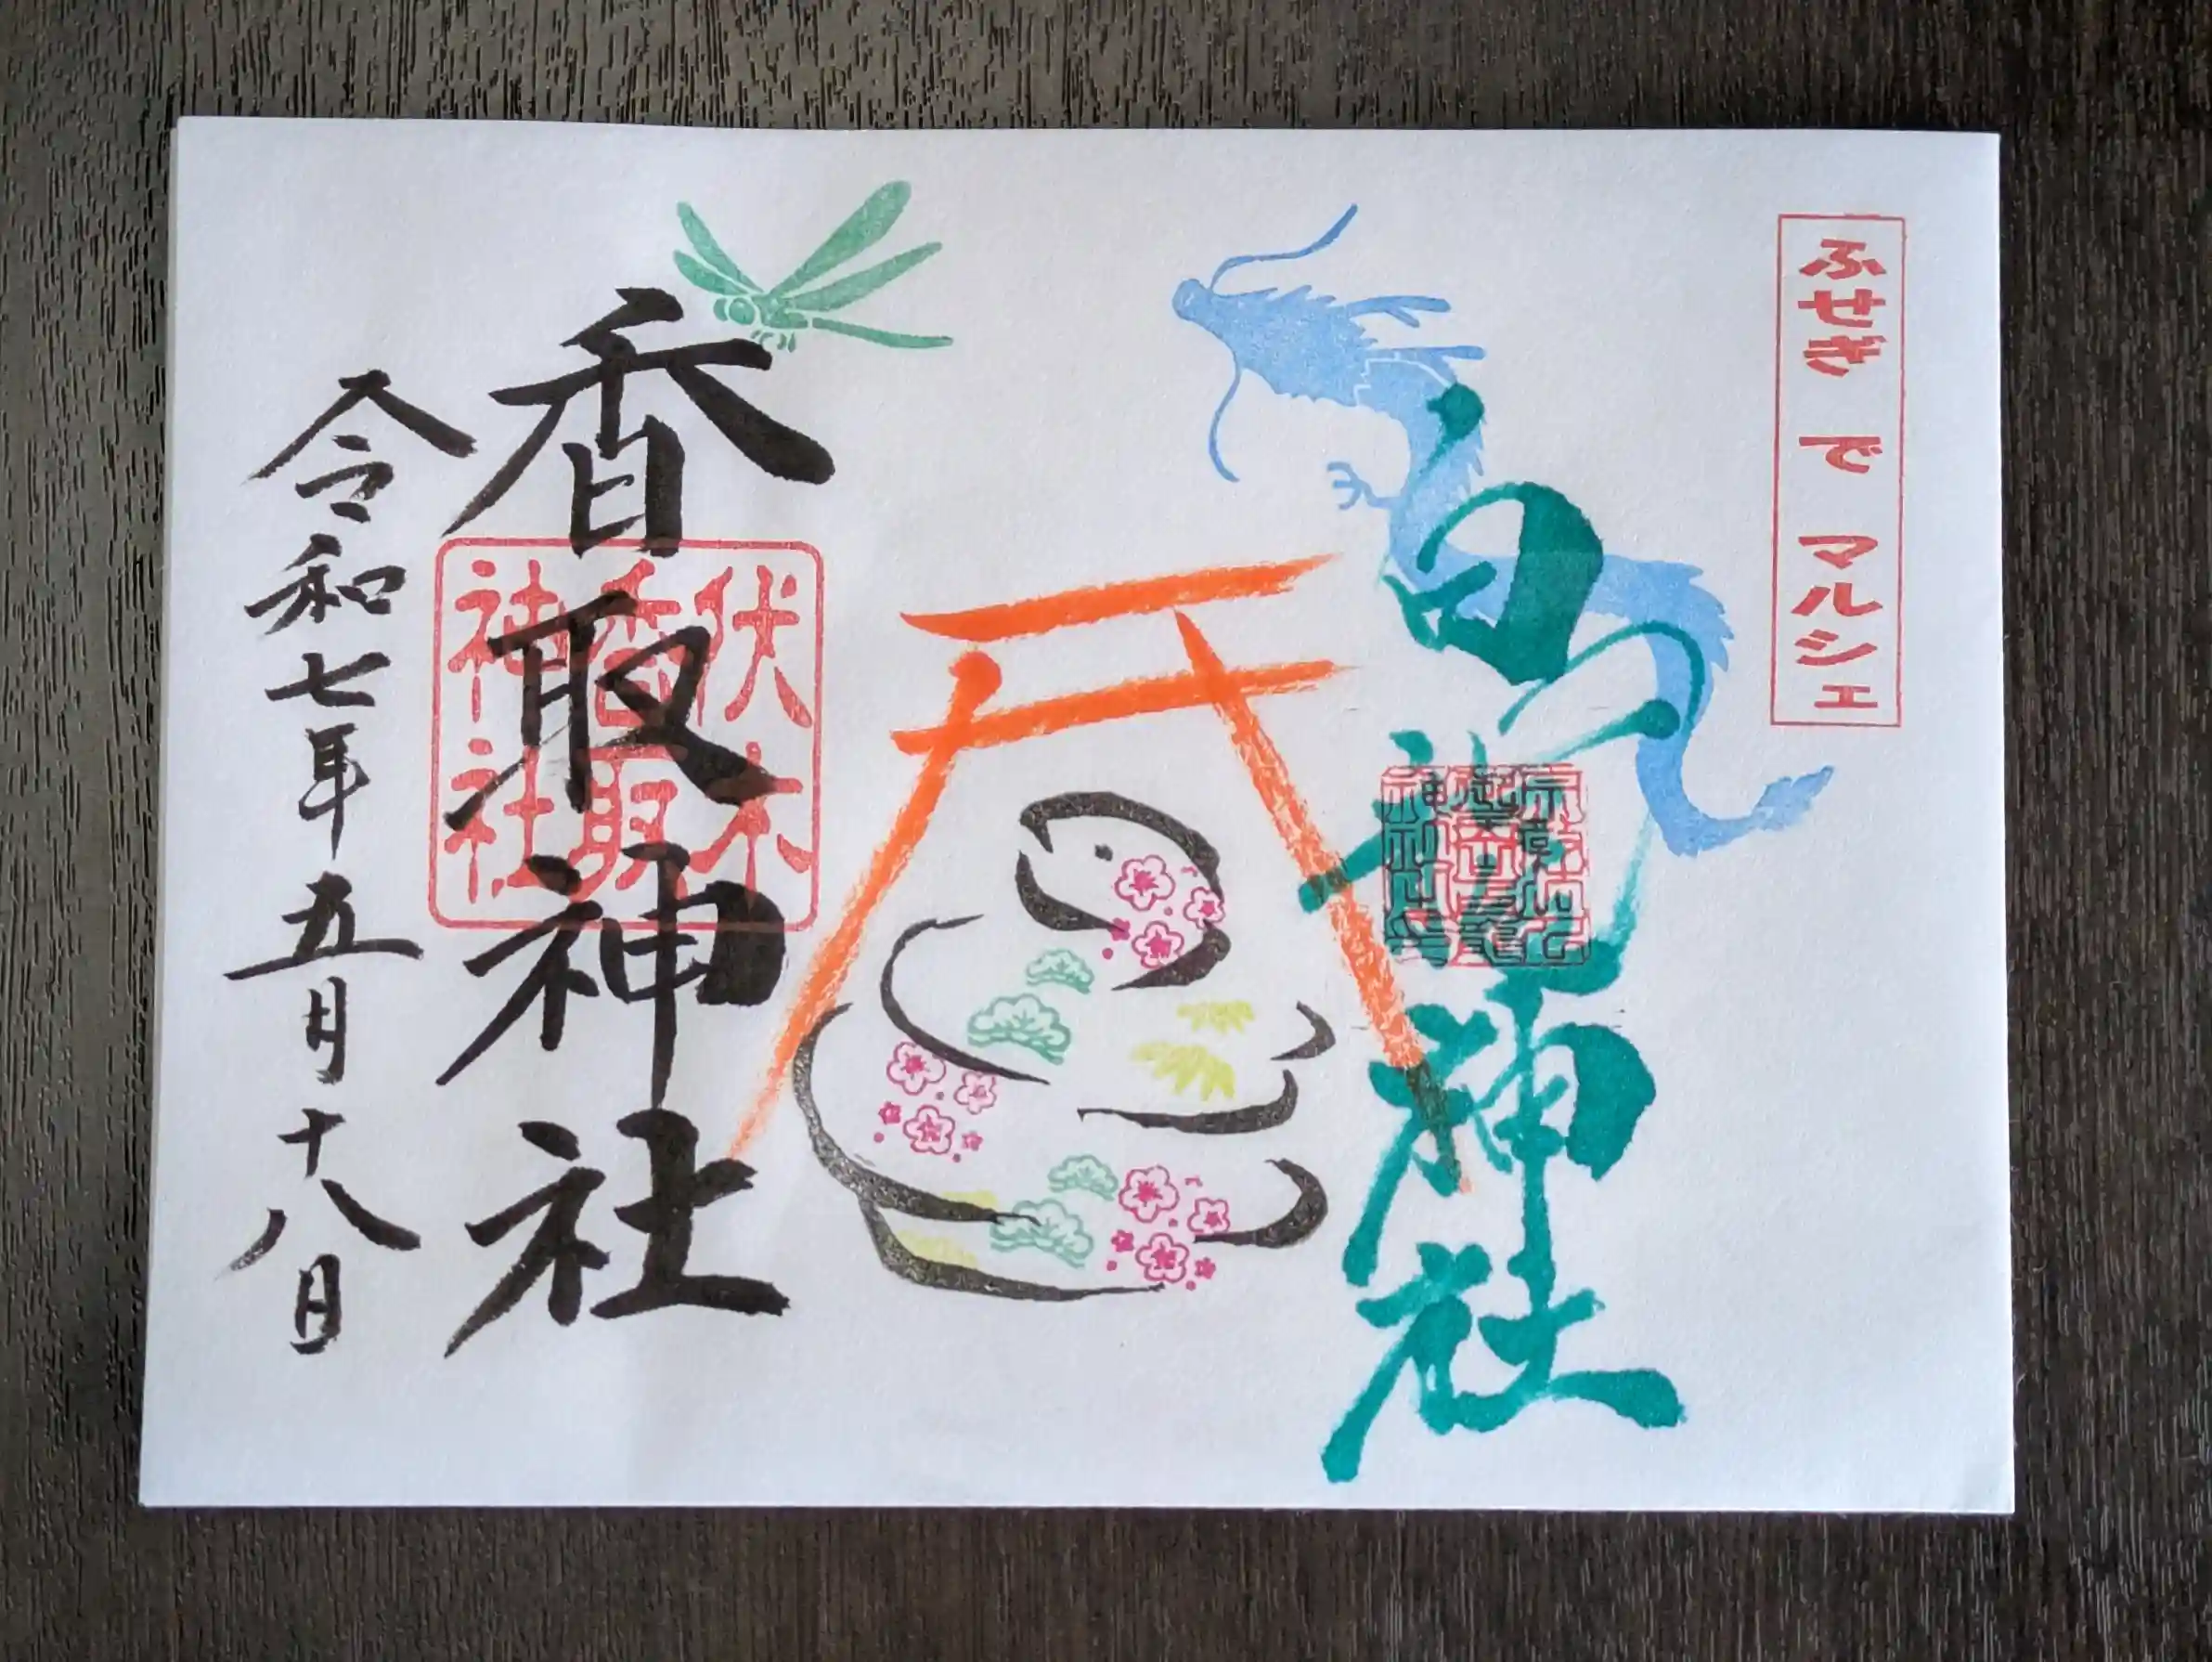 ふせぎ で マルシェ
神社
香取神社
伏木
香取
神社
令和七年五月十八日